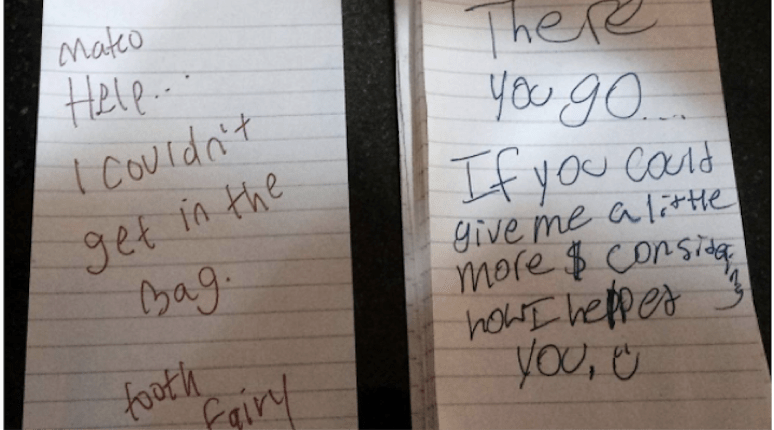 Mateo
Help...
I couldn't
get in the
Bag.
tooth
Fairy
There
you go...
If you could
give me a little
more $ considering
how I helped
you, ☺